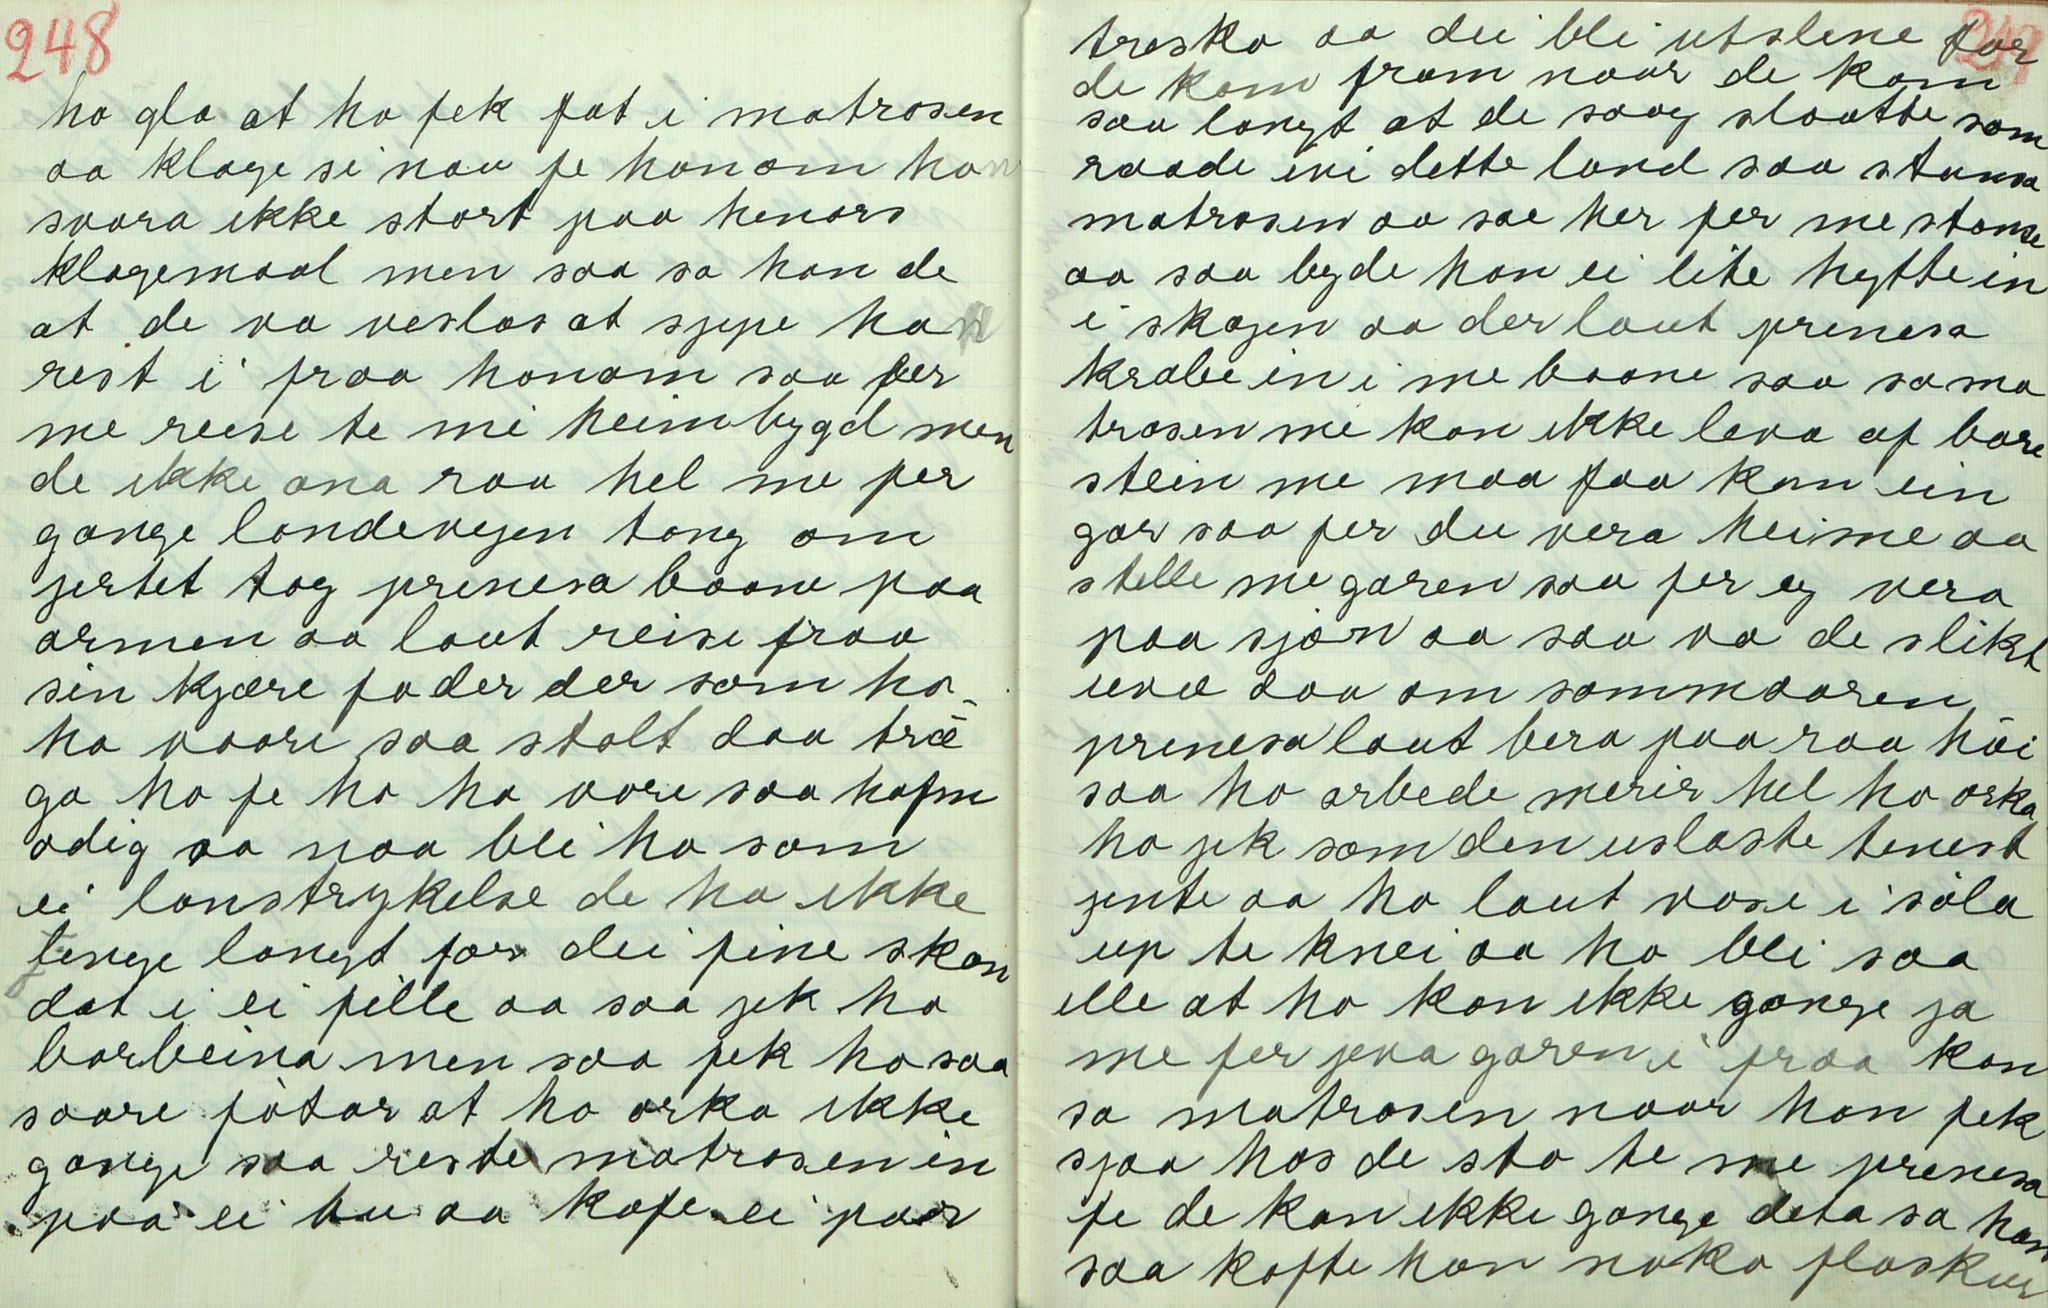 248
ho gla at ho fek fat i matrosen
aa klage si nau fe honom han
svara ikke stort paa henars
klagemaal men saa sa han de
at de va veslas at sjepe ha
rest i fraa honom saa fer
me reise te mi heimbygd men
de ikke ana raa hel me fer
gange landevejen tong om
jertet tog prinesa baane paa
armen aa laut reise fraa
sin kjære fader der som ho
ha vaare saa stolt daa træ
ga ho fe ho ha vore saa hofm
odig aa naa blei ho som
ei lanstrykelse de ha ikke
lenge langt før dei fine skon
dat i ei fille aa saa jek ho
barbeina men saa fek ho saa
saare føtar at ho orka ikke
gange saa reste matrosen in
paa ei bu aa kafe ei paar
249
tresko aa dei blei utslene før
de kom fram naar de kom
saa langt at de saag slaatte som
raade ivi dette land saa stansa
matrosen aa sae her fer me stanse
aa saa byde han ei lite hytte in
i skogen aa der laut prinesa
krabe in i me baane saa sa ma
trosen me kan ikke leva af bare
stein me maa faa kan ein
gar saa fer du vera heime aa
stelle me garen saa fer eg vera
paa sjøn aa saa va de slikt
uvæ daa om sommaaren
prinesa laut bera paa raa høi
saa ho arbede merir hel ho orka
ho jek som den uslaste tenest
jente aa ho laut vase i søla
up te knei aa ho blei saa
ille at ho kan ikke gange ja
me fer jeva garen i fraa kan
sa matrosen naar han fek
sjaa hos de sto te me prinesa
fe de kan ikke gange deta sa han
saa kafte han noko flaskur